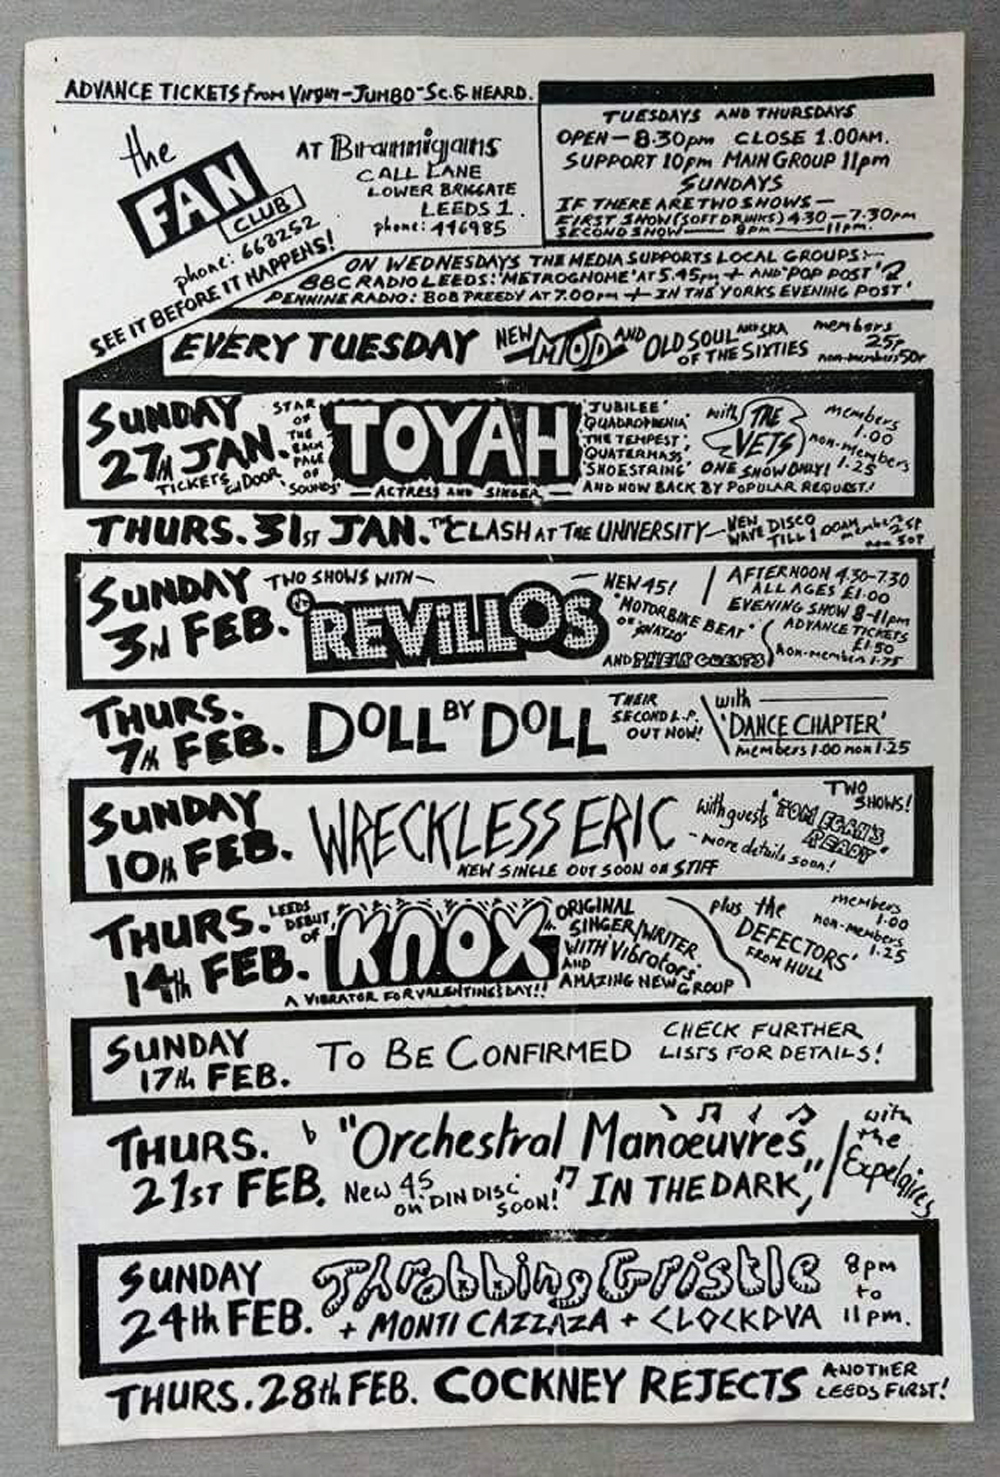 ADVANCE TICKETS from VIRGIN - JUMBO - Sc. & HEARD.
the
FAN
CLUB
phone: 663252
SEE IT BEFORE IT HAPPENS!
AT Brannigans
CALL LANE
LOWER BRIGGATE
LEEDS 1.
phone: 446985
TUESDAYS AND THURSDAYS
OPEN — 8.30pm CLOSE 1.00AM.
SUPPORT 10pm MAIN GROUP 11pm
SUNDAYS
IF THERE ARE TWO SHOWS —
FIRST SHOW (SOFT DRINKS) 4.30 — 7.30pm
SECOND SHOW — 8pm — 11pm.
ON WEDNESDAYS THE MEDIA SUPPORTS LOCAL GROUPS:-
BBC RADIO LEEDS: 'METROGNOME' AT 5.45pm + AND 'POP POST'
PENNINE RADIO: BOB PREEDY AT 7.00pm + IN THE 'YORKS EVENING POST'
EVERY TUESDAY
NEW MOD AND OLD SOUL AND SKA
OF THE SIXTIES
members
25p
non-members 50p
SUNDAY
27th JAN.
TICKETS on DOOR
STAR
OF
THE
BACK
PAGE
OF
'SOUNDS'
TOYAH
— ACTRESS AND SINGER —
'JUBILEE'
'QUADROPHENIA'
'THE TEMPEST'
'QUATERMASS'
'SHOESTRING'
with THE
VETS
ONE SHOW ONLY!
AND NOW BACK BY POPULAR REQUEST!
members
1.00
non-members
1.25
THURS. 31ST JAN. THE CLASH AT THE UNIVERSITY —
NEW WAVE DISCO
TILL 1.00AM
members 25p
non 50p
SUNDAY
3rd FEB.
TWO SHOWS WITH —
THE REVILLOS
— NEW 45!
'MOTORBIKE BEAT'
on 'SNATZO'
AND THEIR GUESTS
AFTERNOON 4.30-7.30
ALL AGES £1.00
EVENING SHOW 8-11pm
ADVANCE TICKETS
£1.50
non-member 1.75
THURS.
7th FEB.
DOLL BY DOLL
THEIR
SECOND L.P.
OUT NOW!
with
'DANCE CHAPTER'
members 1.00 non 1.25
SUNDAY
10th FEB.
WRECKLESS ERIC
NEW SINGLE OUT SOON ON STIFF
with guests 'TOM EGAN'S
READY'
- more details soon!
TWO
SHOWS!
THURS.
14th FEB.
LEEDS
DEBUT
OF
KNOX
A VIBRATOR FOR VALENTINES DAY!!
ORIGINAL
SINGER/WRITER
WITH 'Vibrators'
AND
AMAZING NEW GROUP
plus the
'DEFECTORS'
FROM HULL
members
1.00
non-members
1.25
SUNDAY
17th FEB.
TO BE CONFIRMED
CHECK FURTHER
LISTS FOR DETAILS!
THURS.
21ST FEB.
"Orchestral Manœuvres
IN THE DARK,"
New 45
on DIN DISC
SOON!
with
the
Expelaires
SUNDAY
24th FEB.
Throbbing Gristle
+ MONTI CAZZAZA + CLOCKDVA
8pm
to
11pm.
THURS. 28th FEB. COCKNEY REJECTS
ANOTHER
LEEDS FIRST!